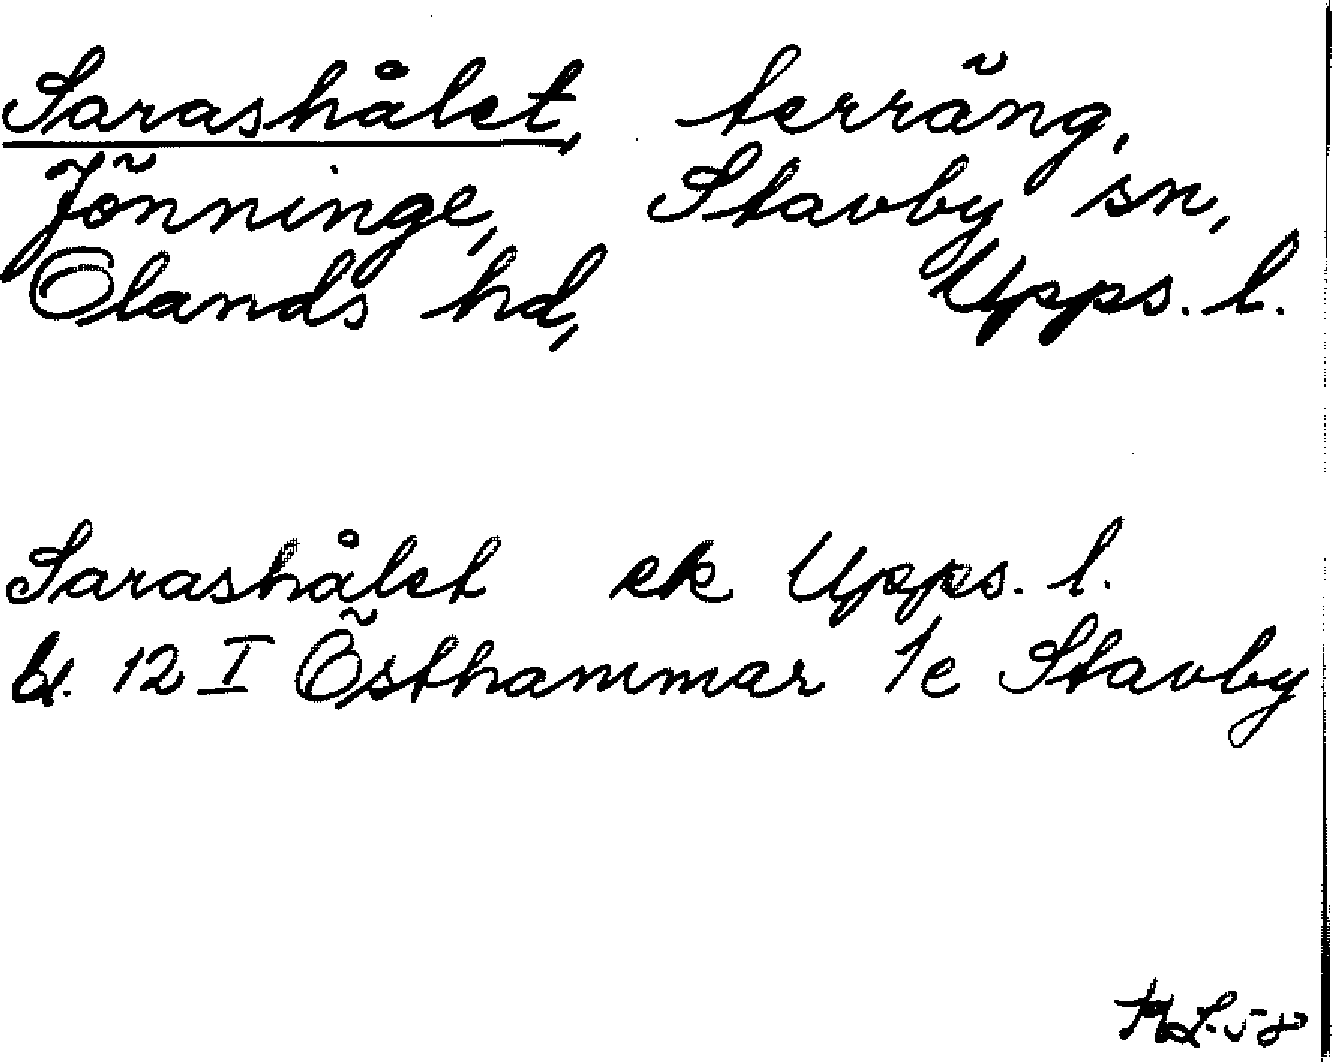 Sarashålet, terräng,
Jönninge, Stavby sn,
Olands hd, Upps. l.
Sarashålet ek Upps. l.
bl. 12 I Östhammar 1e Stavby